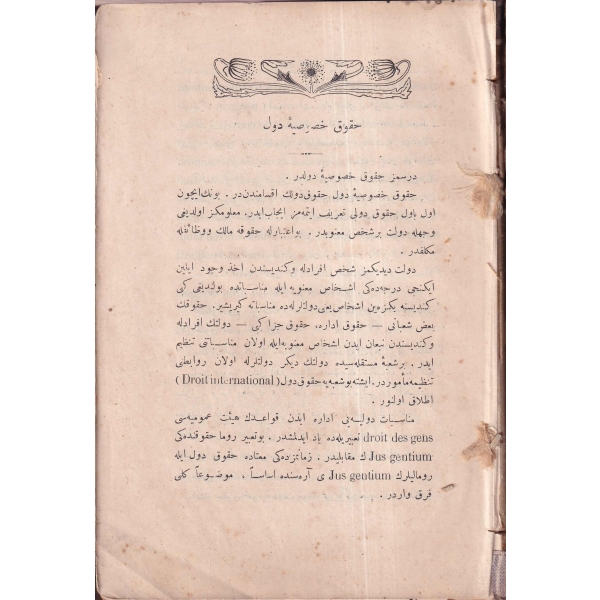 حقوق خصوصیۀ دول
درسمز حقوق خصوصیۀ دولدر .
حقوق خصوصیۀ دول حقوق دولك اقسامندن در . بونك ایچون
اول باول حقوق دولی تعریف ایتمه مز ایجاب ایدر. معلومكز اولدیغی
وجهله دولت برشخص معنویدر . بواعتبارله حقوقه مالك ووظائفله
مكلفدر .
دولت دیدیكمز شخص افرادله وكندیسندن اخذ وجود ایلین
ایكنجی درجه ده كی اشخاص معنویه ایله مناسباتده بولندیغی كبی
كندیسنه بكزه ین اشخاص یعنی دولتلرله ده مناسباته كیریشیر. حقوقك
بعض شعباتی — حقوق اداره، حقوق جزا كبی — دولتك افرادله
وكندیسندن نبعان ایدن اشخاص معنویه ایله اولان مناسباتنی تنظیم
ایدر . برشعبۀ مستقله سی ده دولتك دیكر دولتلرله اولان روابطنی
تنظیمه مأموردر. ایشته بوشعبه یه حقوق دول ( Droit international )
اطلاق اولنور .
مناسبات دولیه یی اداره ایدن قواعدك هیئت عمومیه سی
droit des gens تعبیریله ده یاد ایدلمشدر . بوتعبیر روما حقوقنده كی
Jus gentium ك مقابلیدر . زمانمزده كی معتاده حقوق دول ایله
رومالیلرك Jus gentium ی آره سنده اساساً ، موضوعاً كلی
فرق واردر .